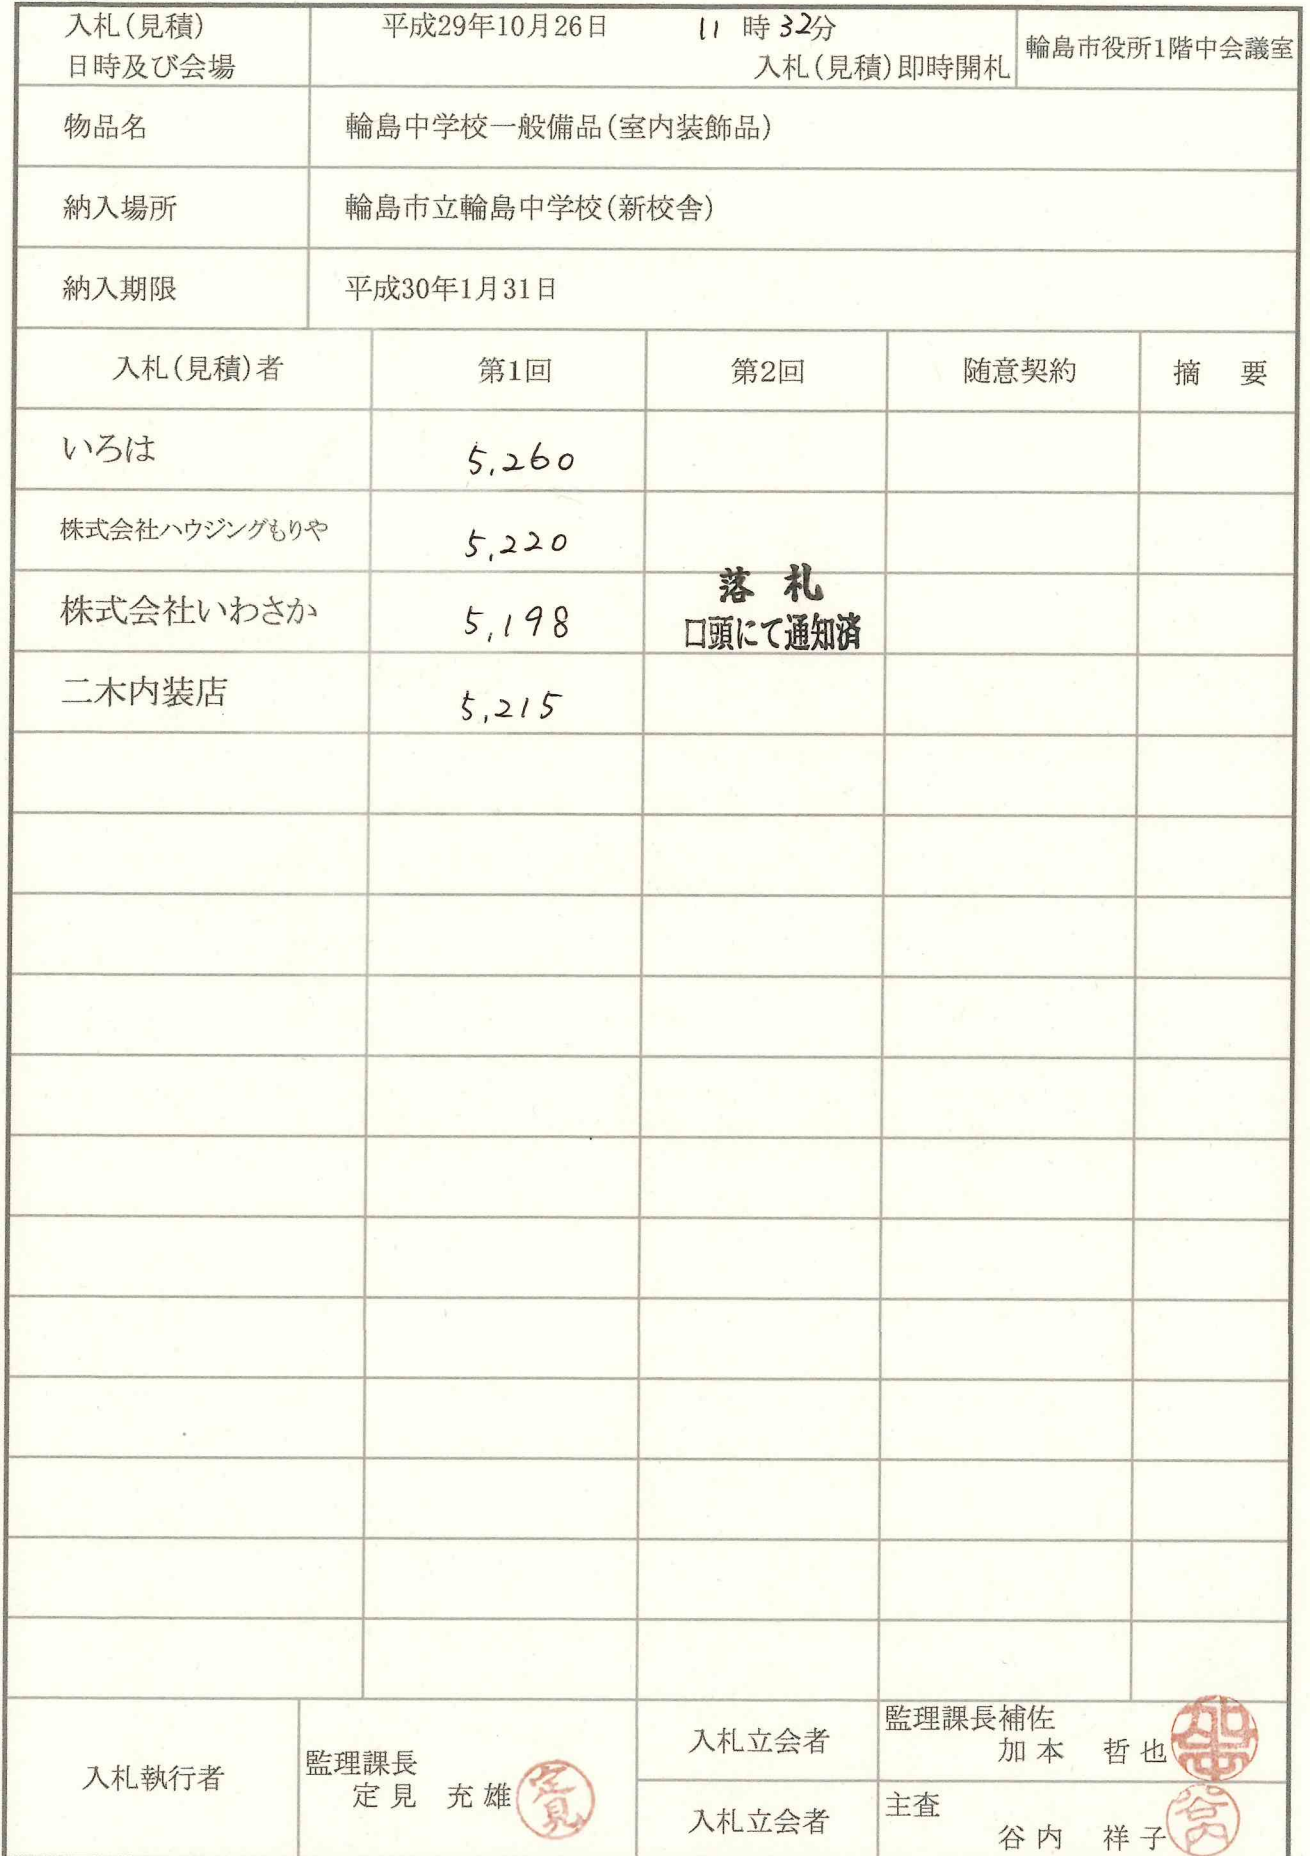 入札(見積)
日時及び会場
平成29年10月26日 11 時 32分
入札(見積)即時開札
輪島市役所1階中会議室
物品名 輪島中学校一般備品(室内装飾品)
納入場所 輪島市立輪島中学校(新校舎)
納入期限 平成30年1月31日
入札(見積)者 第1回 第2回 随意契約 摘 要
いろは 5,260
株式会社ハウジングもりや 5,220
株式会社いわさか 5,198 落札
口頭にて通知済
二木内装店 5,215
入札執行者 監理課長
定見 充雄 定見
入札立会者 監理課長補佐
加本 哲也 加本
入札立会者 主査
谷内 祥子 谷内